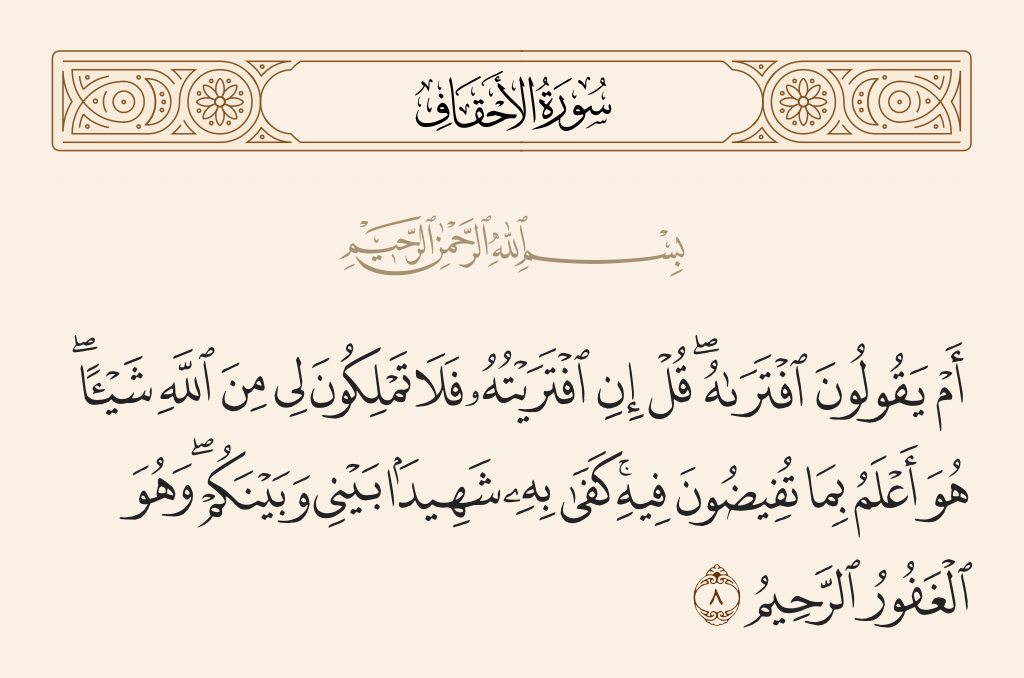 سُورَةُ الأَحْقَافِ
بِسْمِ ٱللَّهِ ٱلرَّحْمَٰنِ ٱلرَّحِيمِ
أَمْ يَقُولُونَ ٱفْتَرَىٰهُ ۖ قُلْ إِنِ ٱفْتَرَيْتُهُۥ فَلَا تَمْلِكُونَ لِى مِنَ ٱللَّهِ شَيْـًٔا ۖ
هُوَ أَعْلَمُ بِمَا تُفِيضُونَ فِيهِ ۚ كَفَىٰ بِهِۦ شَهِيدًۢا بَيْنِى وَبَيْنَكُمْ ۖ وَهُوَ
ٱلْغَفُورُ ٱلرَّحِيمُ ٨